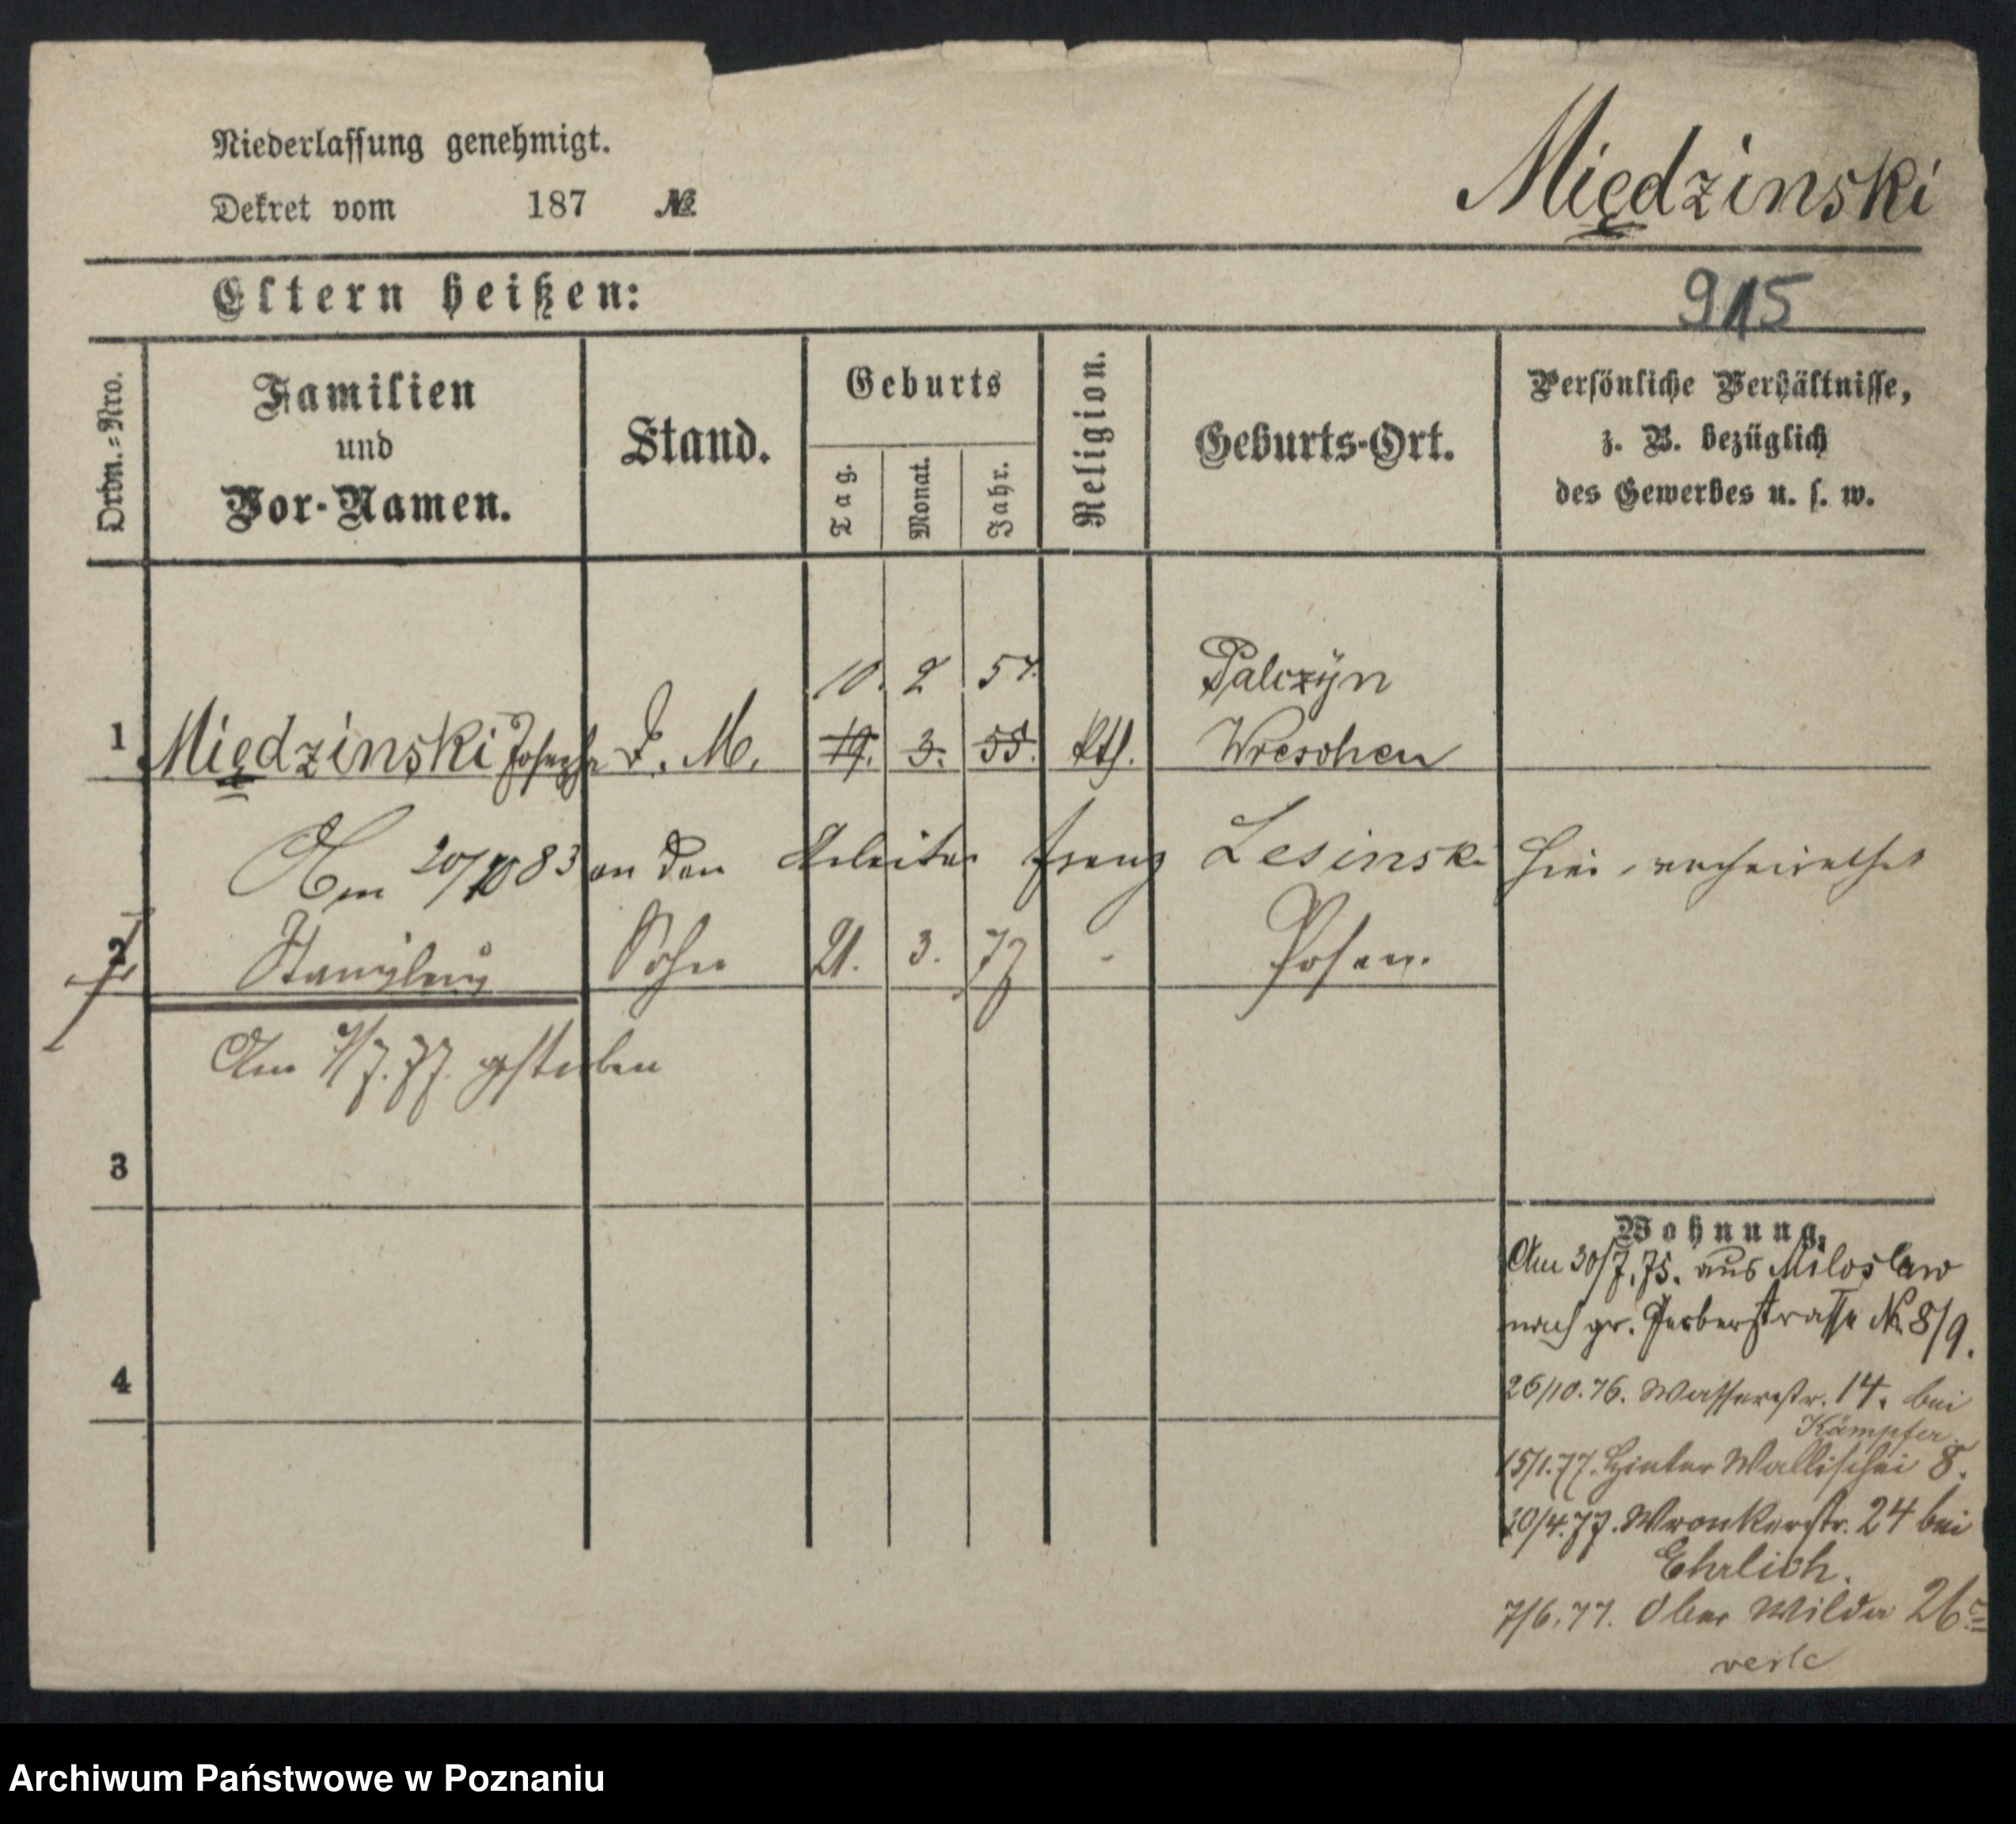 Niederlassung genehmigt.
Dekret vom 187 №
Międzinski
Eltern heißen:
915
Ordn.=Nro.
Familien
und
Vor-Namen.
Stand.
Geburts
Tag.
Monat.
Jahr.
Religion.
Geburts-Ort.
Persönliche Verhältnisse,
z. B. bezüglich
des Gewerbes u. s. w.
10. 2 57. Palczÿn
1 Międzinski Josepha D. M. 19. 3. 55. kth. Wreschen
Am 20/10 83 an den Arbeiter Franz Lesinski hier verheirathet
2 Stanislaus Sohn 21. 3. 77 - Posen.
Am 7/7.77. gestorben
3
4
Wohnung.
Am 30/7.75. aus Miloslaw
nach gr. Gerberstrasse № 8/9.
26/10.76. Wasserstr. 14. bei
Kämpfer.
15/1.77. Hinter Wallischei 8.
30/4.77. Wronkerstr. 24 bei
Ehrlich.
7/6.77. Ober Wilda 26
Archiwum Państwowe w Poznaniu